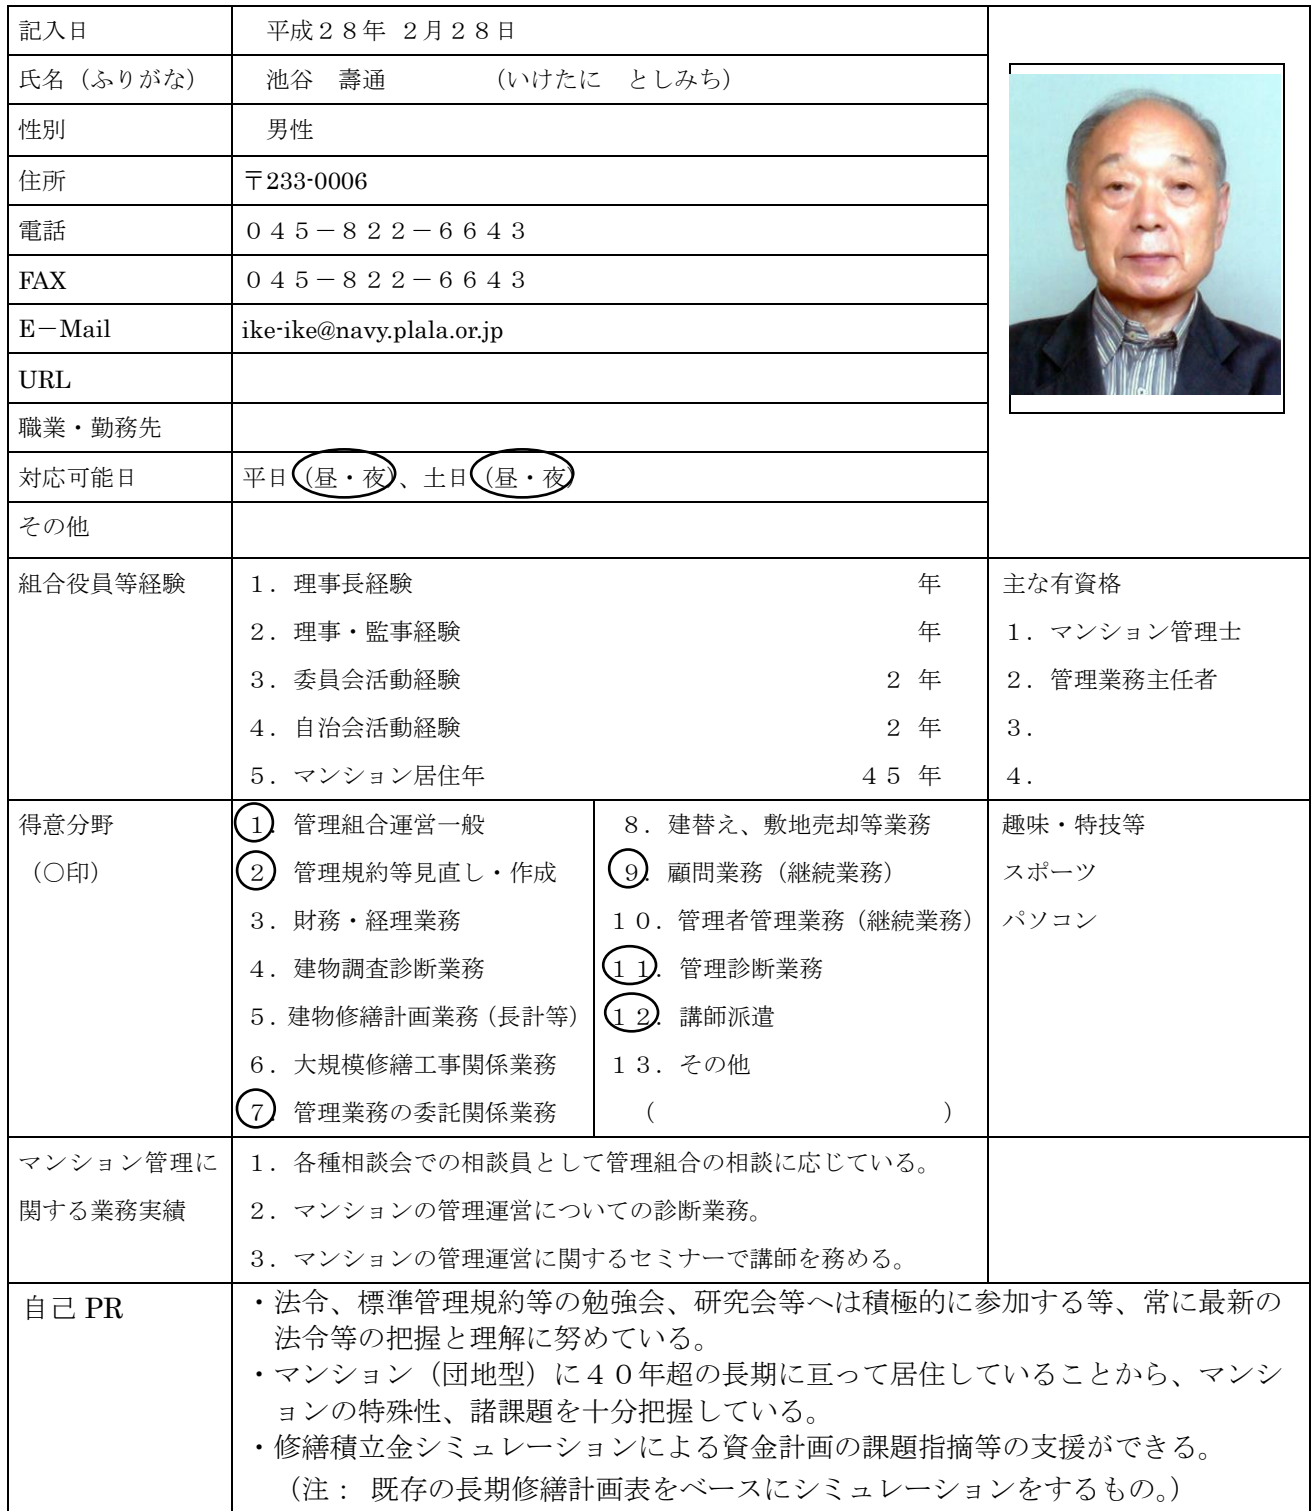 記入日　平成２８年 ２月２８日
氏名（ふりがな）　池谷　壽通　（いけたに　としみち）
性別　男性
住所　〒233-0006
電話　０４５－８２２－６６４３
FAX　０４５－８２２－６６４３
E－Mail　ike-ike@navy.plala.or.jp
URL
職業・勤務先
対応可能日　平日（昼・夜）、土日（昼・夜）
その他
組合役員等経験
１．理事長経験　年
２．理事・監事経験　年
３．委員会活動経験　２ 年
４．自治会活動経験　２ 年
５．マンション居住年　４５ 年
主な有資格
１．マンション管理士
２．管理業務主任者
３．
４．
得意分野
（○印）
１．管理組合運営一般
２．管理規約等見直し・作成
３．財務・経理業務
４．建物調査診断業務
５．建物修繕計画業務（長計等）
６．大規模修繕工事関係業務
７．管理業務の委託関係業務
８．建替え、敷地売却等業務
９．顧問業務（継続業務）
１０．管理者管理業務（継続業務）
１１．管理診断業務
１２．講師派遣
１３．その他
（　　　　　　　　　　　　）
趣味・特技等
スポーツ
パソコン
マンション管理に
関する業務実績
１．各種相談会での相談員として管理組合の相談に応じている。
２．マンションの管理運営についての診断業務。
３．マンションの管理運営に関するセミナーで講師を務める。
自己 PR
・法令、標準管理規約等の勉強会、研究会等へは積極的に参加する等、常に最新の
法令等の把握と理解に努めている。
・マンション（団地型）に４０年超の長期に亘って居住していることから、マンシ
ョンの特殊性、諸課題を十分把握している。
・修繕積立金シミュレーションによる資金計画の課題指摘等の支援ができる。
（注： 既存の長期修繕計画表をベースにシミュレーションをするもの。）